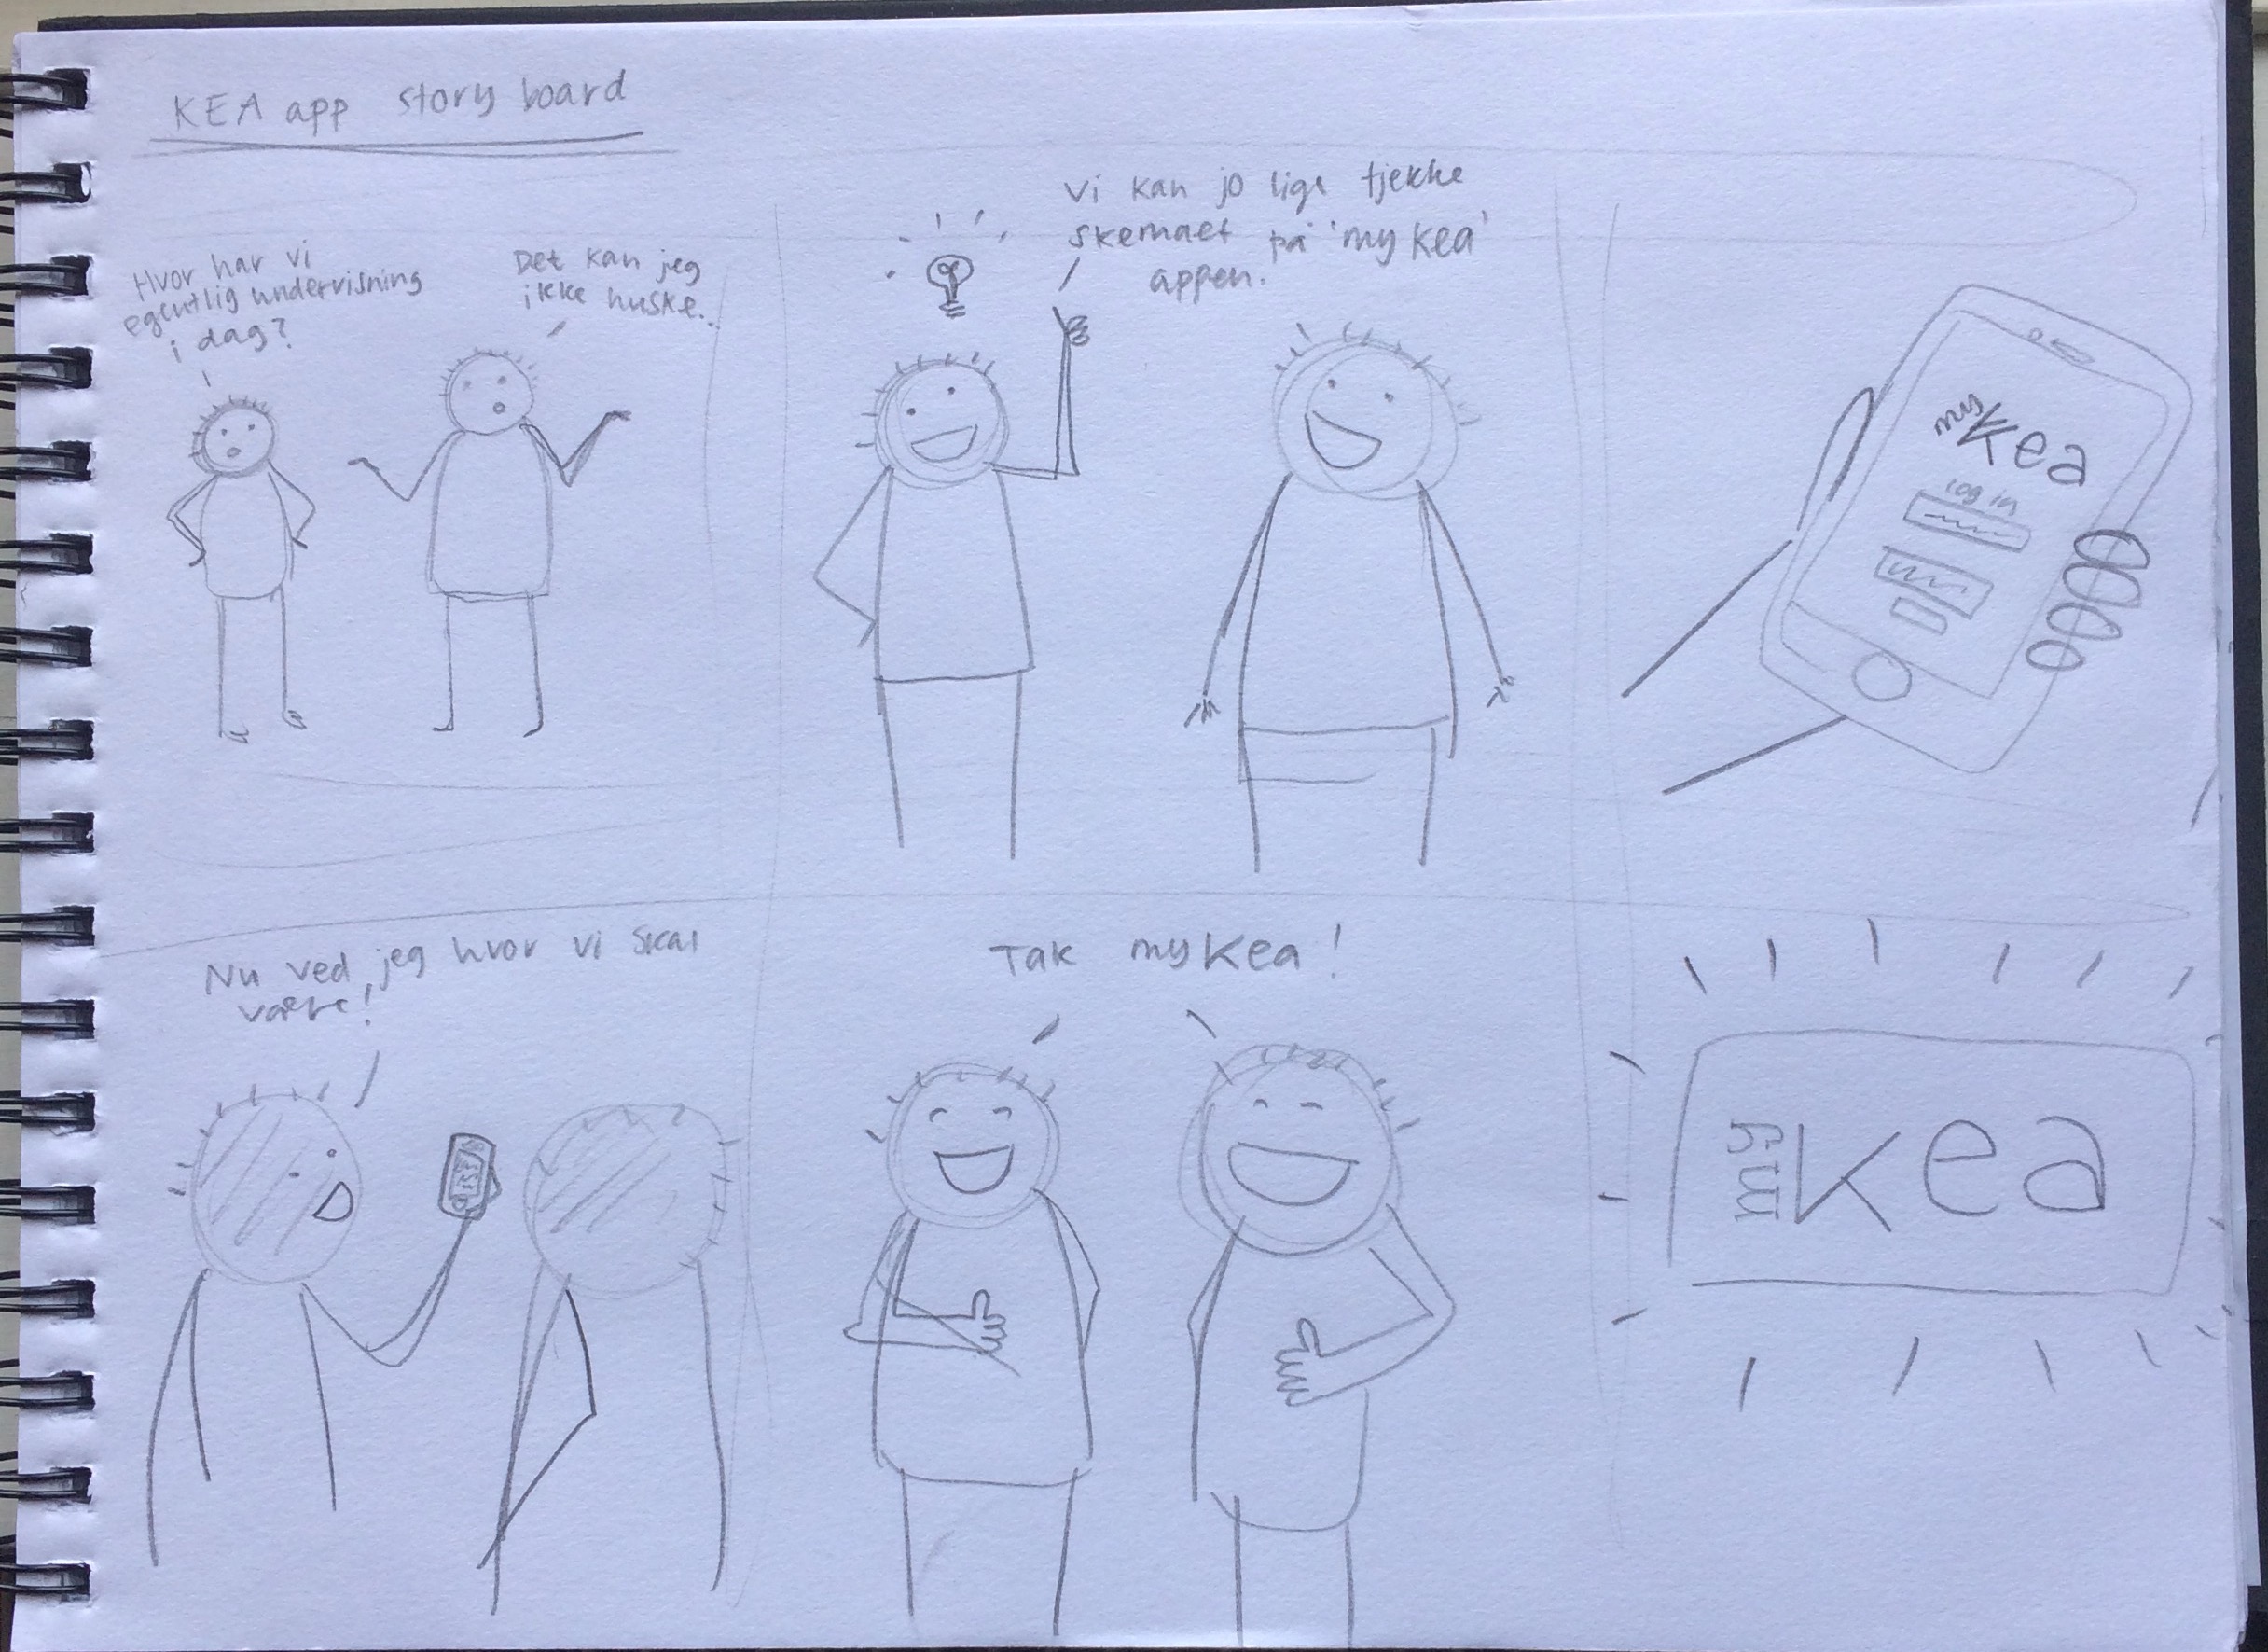 KEA app story board
Hvor har vi
egentlig undervisning
i dag?
Det kan jeg
ikke huske...
Vi kan jo lige tjekke
skemaet på 'my kea'
appen.
my kea
log in
Nu ved jeg hvor vi skal
være!
Tak my kea!
my kea